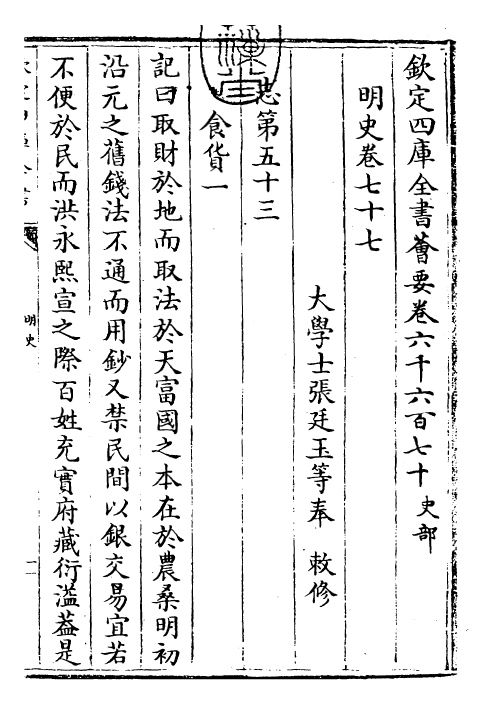 欽定四庫全書薈要卷六千六百七十 史部
明史卷七十七
大學士張廷玉等奉 敕修
志第五十三
食貨一
記曰取財於地而取法於天富國之本在於農桑明初
沿元之舊錢法不通而用鈔又禁民間以銀交易宜若
不便於民而洪永熙宣之際百姓充實府藏衍溢葢是
明史